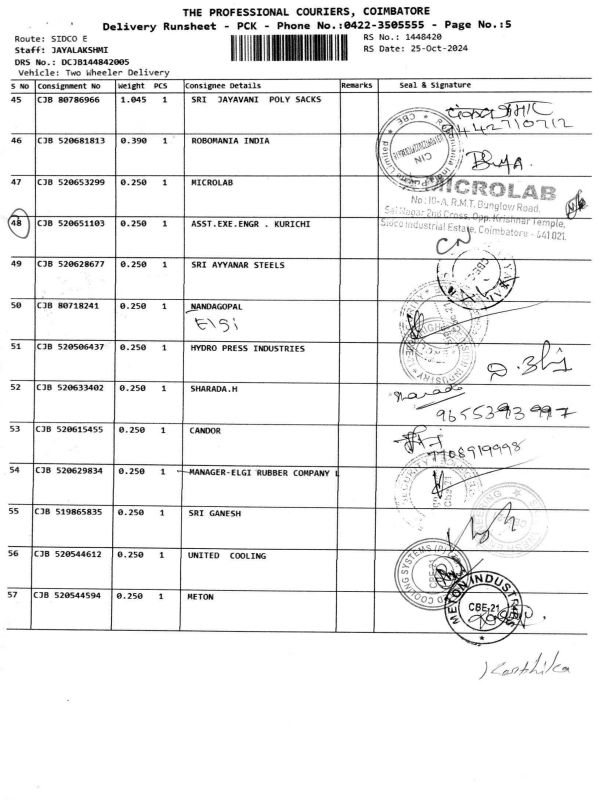 THE PROFESSIONAL COURIERS, COIMBATORE
Delivery Runsheet - PCK - Phone No.:0422-3505555 - Page No.:5
Route: SIDCO E RS No.: 1448420
Staff: JAYALAKSHMI RS Date: 25-Oct-2024
DRS No.: DCJB144842005
Vehicle: Two Wheeler Delivery
S No Consignment No Weight PCS Consignee Details Remarks Seal & Signature
45 CJB 80786966 1.045 1 SRI JAYAVANI POLY SACKS
46 CJB 520681813 0.390 1 ROBOMANIA INDIA
CBE
CIN
47 CJB 520653299 0.250 1 MICROLAB
MICROLAB
No:10-A, R.M.T. Bunglow Road,
Sai Nagar 2nd Cross, Opp. Krishnar Temple,
Sidco Industrial Estate, Coimbatore - 641 021.
48 CJB 520651103 0.250 1 ASST.EXE.ENGR . KURICHI
CN
49 CJB 520628677 0.250 1 SRI AYYANAR STEELS
50 CJB 80718241 0.250 1 NANDAGOPAL
Elgi
51 CJB 520506437 0.250 1 HYDRO PRESS INDUSTRIES
52 CJB 520633402 0.250 1 SHARADA.H
Sharada
9655393997
53 CJB 520615455 0.250 1 CANDOR
7708919998
54 CJB 520629834 0.250 1 MANAGER-ELGI RUBBER COMPANY L
55 CJB 519865835 0.250 1 SRI GANESH
56 CJB 520544612 0.250 1 UNITED COOLING
COOLING SYSTEMS (P)
57 CJB 520544594 0.250 1 METON
METON INDUSTRIES
CBE-21
Karthika